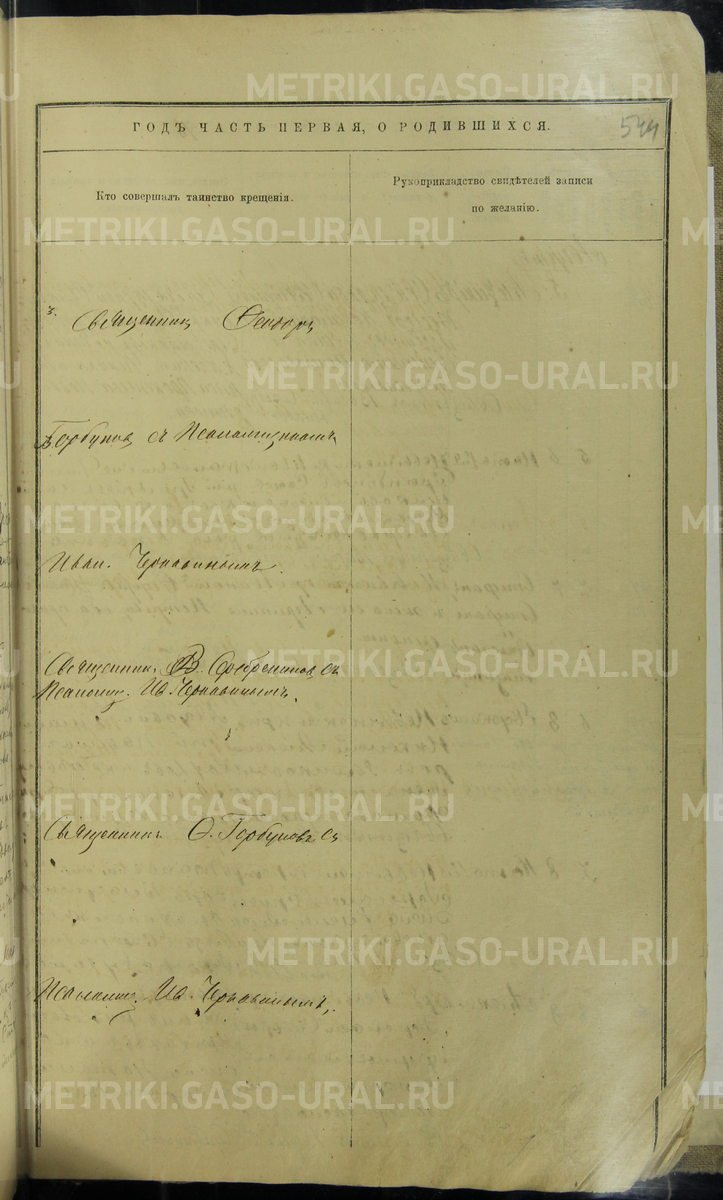 METRIKI.GASO-URAL.RU
ГОДЪ ЧАСТЬ ПЕРВАЯ, О РОДИВШИХСЯ.
544
Кто совершалъ таинство крещенія.
Рукоприкладство свидѣтелей записи
по желанію.
METRIKI.GASO-URAL.RU
Священникъ Ѳеодоръ
METRIKI.GASO-URAL.RU
Горбуновъ съ Псаломщикомъ
METRIKI.GASO-URAL.RU
Иван. Чернавинымъ.
METRIKI.GASO-URAL.RU
Священник. В. Серебренниковъ съ
Псаломщ. Ив. Чернавинымъ.
METRIKI.GASO-URAL.RU
Священникъ Ѳ. Горбуновъ съ
METRIKI.GASO-URAL.RU
Псаломщ. Ив. Чернавинымъ.
METRIKI.GASO-URAL.RU